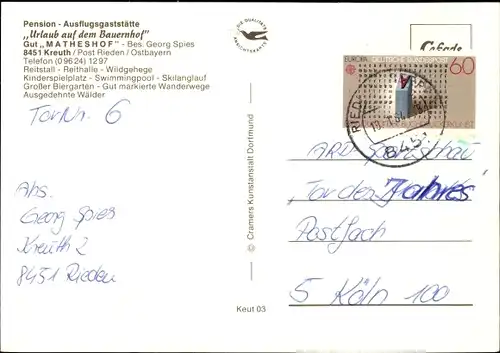 Pension - Ausflugsgaststätte
„Urlaub auf dem Bauernhof"
Gut „MATHESHOF" - Bes. Georg Spies
8451 Kreuth / Post Rieden / Ostbayern
Telefon (09624) 1297
Reitstall - Reithalle - Wildgehege
Kinderspielplatz - Swimmingpool - Skilanglauf
Großer Biergarten - Gut markierte Wanderwege
Ausgedehnte Wälder
Tor Nr. 6
Abs.
Georg Spies
Kreuth 2
8451 Rieden
DIE QUALITÄTS
ANSICHTSKARTE
Cramers Kunstanstalt Dortmund
Keut 03
EUROPA DEUTSCHE BUNDESPOST
60
845
ARD Sportschau
"Tor des Jahres"
Postfach
5 Köln 100